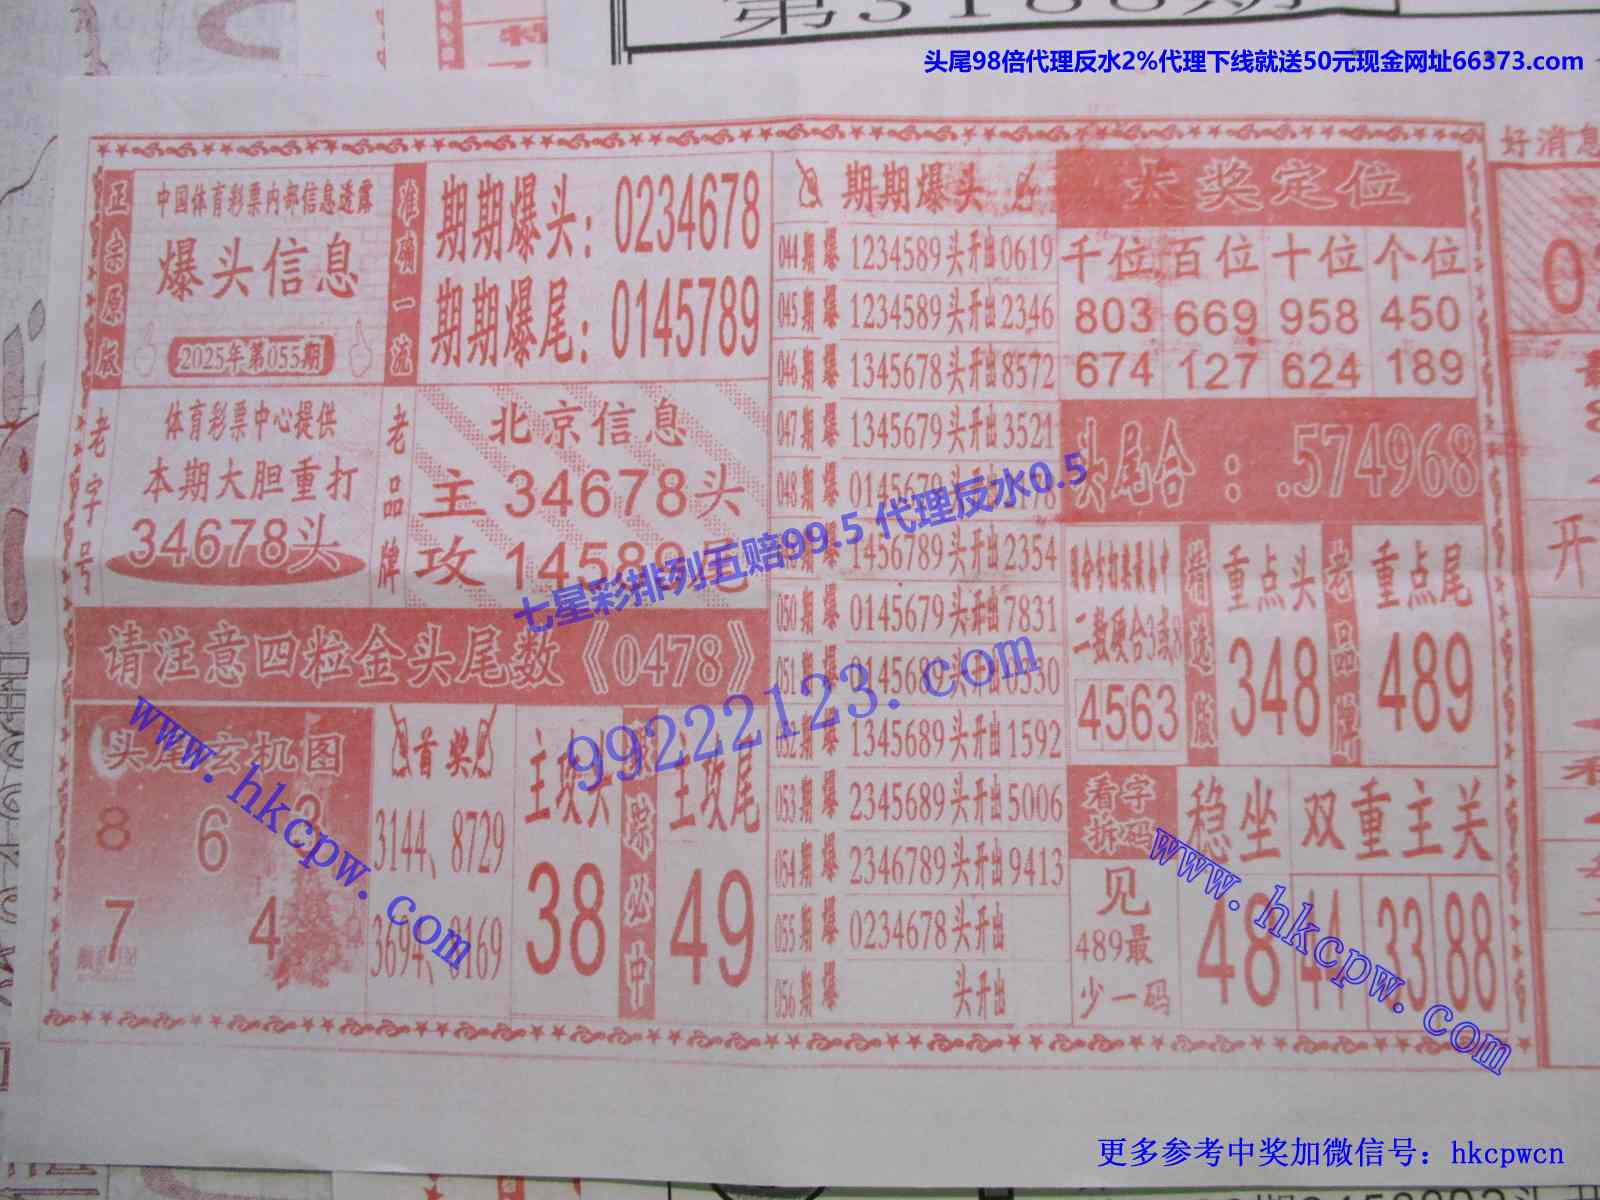 第3188期
头尾98倍代理反水2%代理下线就送50元现金网址66373.com
好消息
正宗原版
中国体育彩票内部信息透露
爆头信息
2025年第055期
准确一流
期期爆头：0234678
期期爆尾：0145789
老字号
体育彩票中心提供
本期大胆重打
34678头
老品牌
北京信息
主 34678头
攻 14589尾
请注意四粒金头尾数《0478》
头尾玄机图
8 6 2
7 4
首奖
3144、8729
3694、8169
主攻头
38
综必中
主攻尾
49
期期爆头
044期 爆 1234589头开出0619
045期 爆 1234589头开出2346
046期 爆 1345678头开出8572
047期 爆 1345679头开出3521
048期 爆
1456789头开出2354
050期 爆 0145679头开出7831
051期 爆 0145689头开出0330
052期 爆 1345689头开出1592
053期 爆 2345689头开出5006
054期 爆 2346789头开出9413
055期 爆 0234678头开出
056期 爆 头开出
大奖定位
千位 百位 十位 个位
803 669 958 450
674 127 624 189
头尾合：.574968
二数硬合3或8
4563
精选版
重点头
348
老品牌
重点尾
489
看字拆码
见
489最
少一码
稳坐
48
双重主关
44 33 88
开
七星彩排列五赔99.5 代理反水0.5
99222123.com
www.hkcpw.com
www.hkcpw.com
更多参考中奖加微信号：hkcpwcn